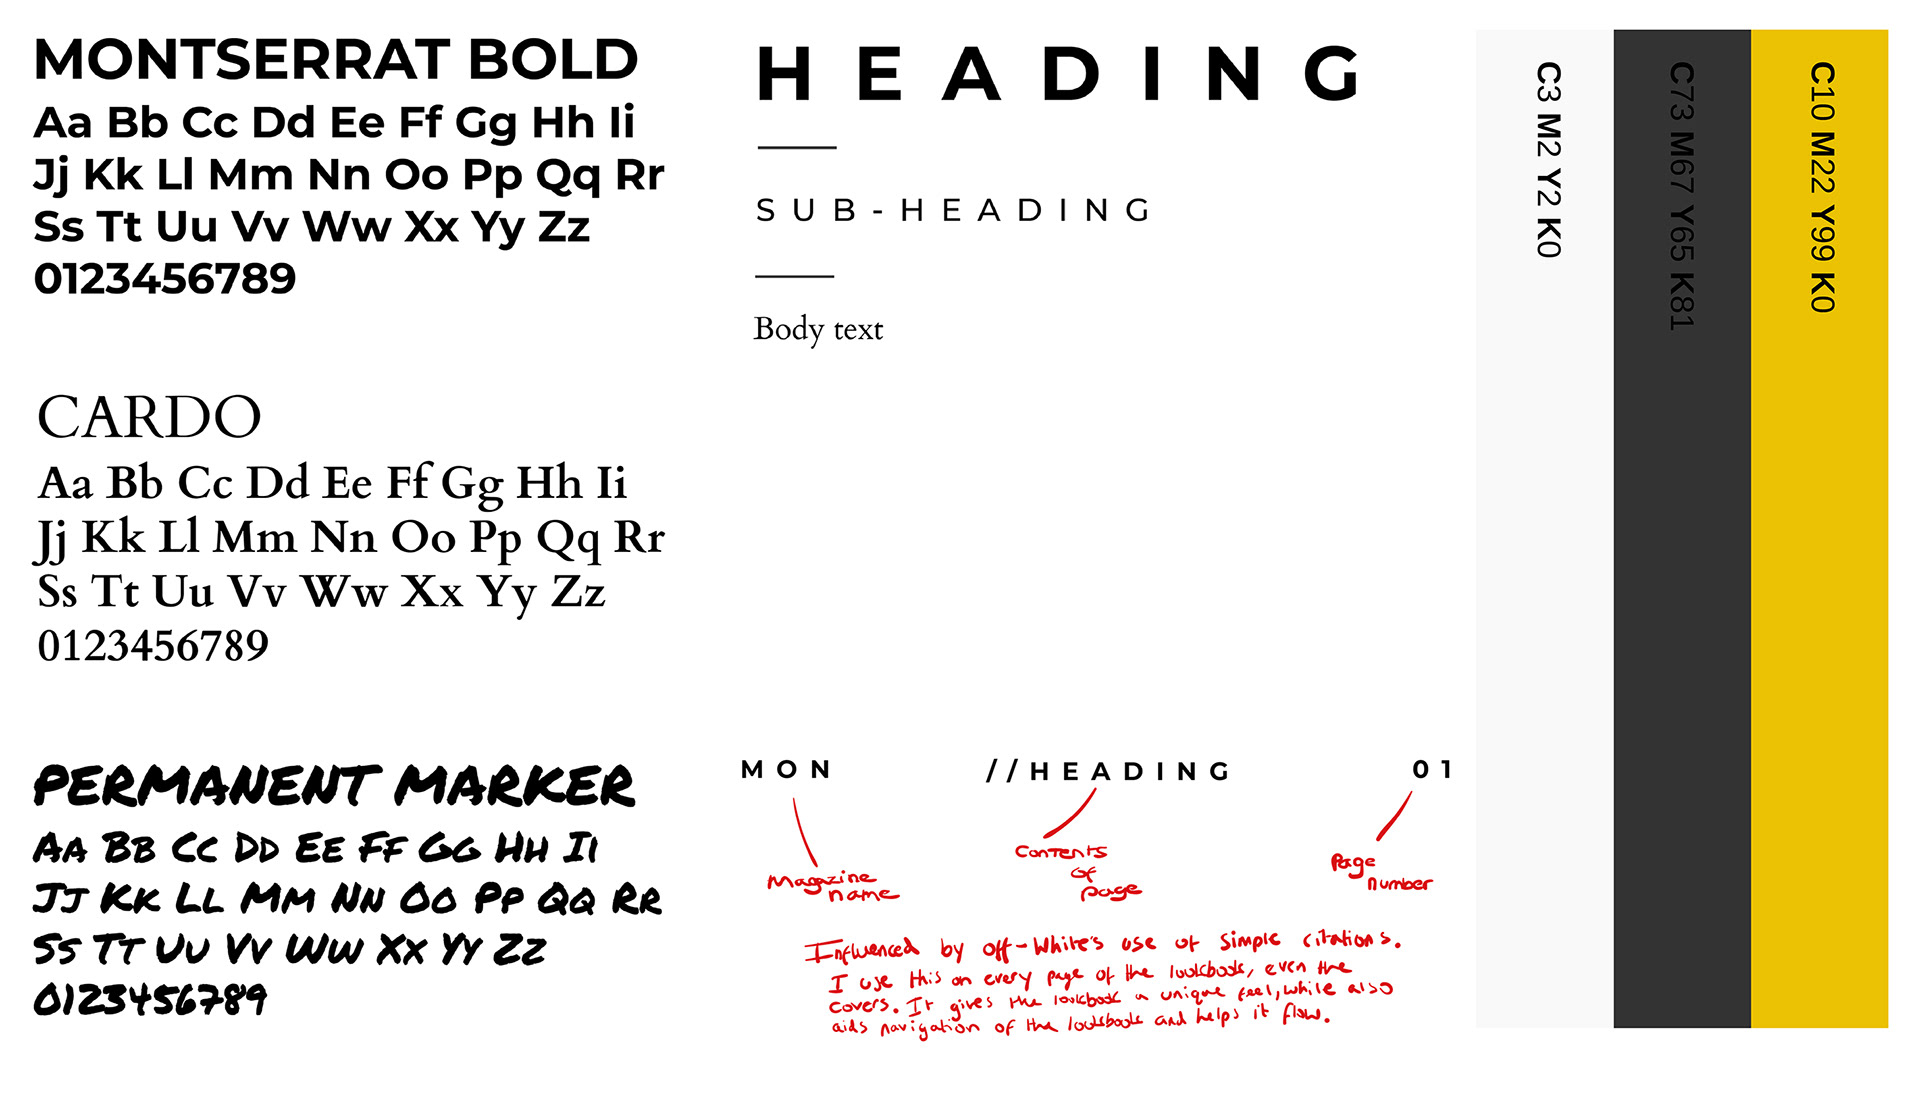 MONTSERRAT BOLD
Aa Bb Cc Dd Ee Ff Gg Hh Ii
Jj Kk Ll Mm Nn Oo Pp Qq Rr
Ss Tt Uu Vv Ww Xx Yy Zz
0123456789
CARDO
Aa Bb Cc Dd Ee Ff Gg Hh Ii
Jj Kk Ll Mm Nn Oo Pp Qq Rr
Ss Tt Uu Vv Ww Xx Yy Zz
0123456789
PERMANENT MARKER
AA BB CC DD EE FF GG HH II
JJ KK LL MM NN OO PP QQ RR
SS TT UU VV WW XX YY ZZ
0123456789
HEADING
SUB-HEADING
Body text
MON
//HEADING
01
Magazine
name
Contents
of
page
Page
number
Influenced by off-White's use of simple citations.
I use this on every page of the lookbook, even the
covers. It gives the lookbook a unique feel, while also
aids navigation of the lookbook and helps it flow.
C3 M2 Y2 K0
C73 M67 Y65 K81
C10 M22 Y99 K0